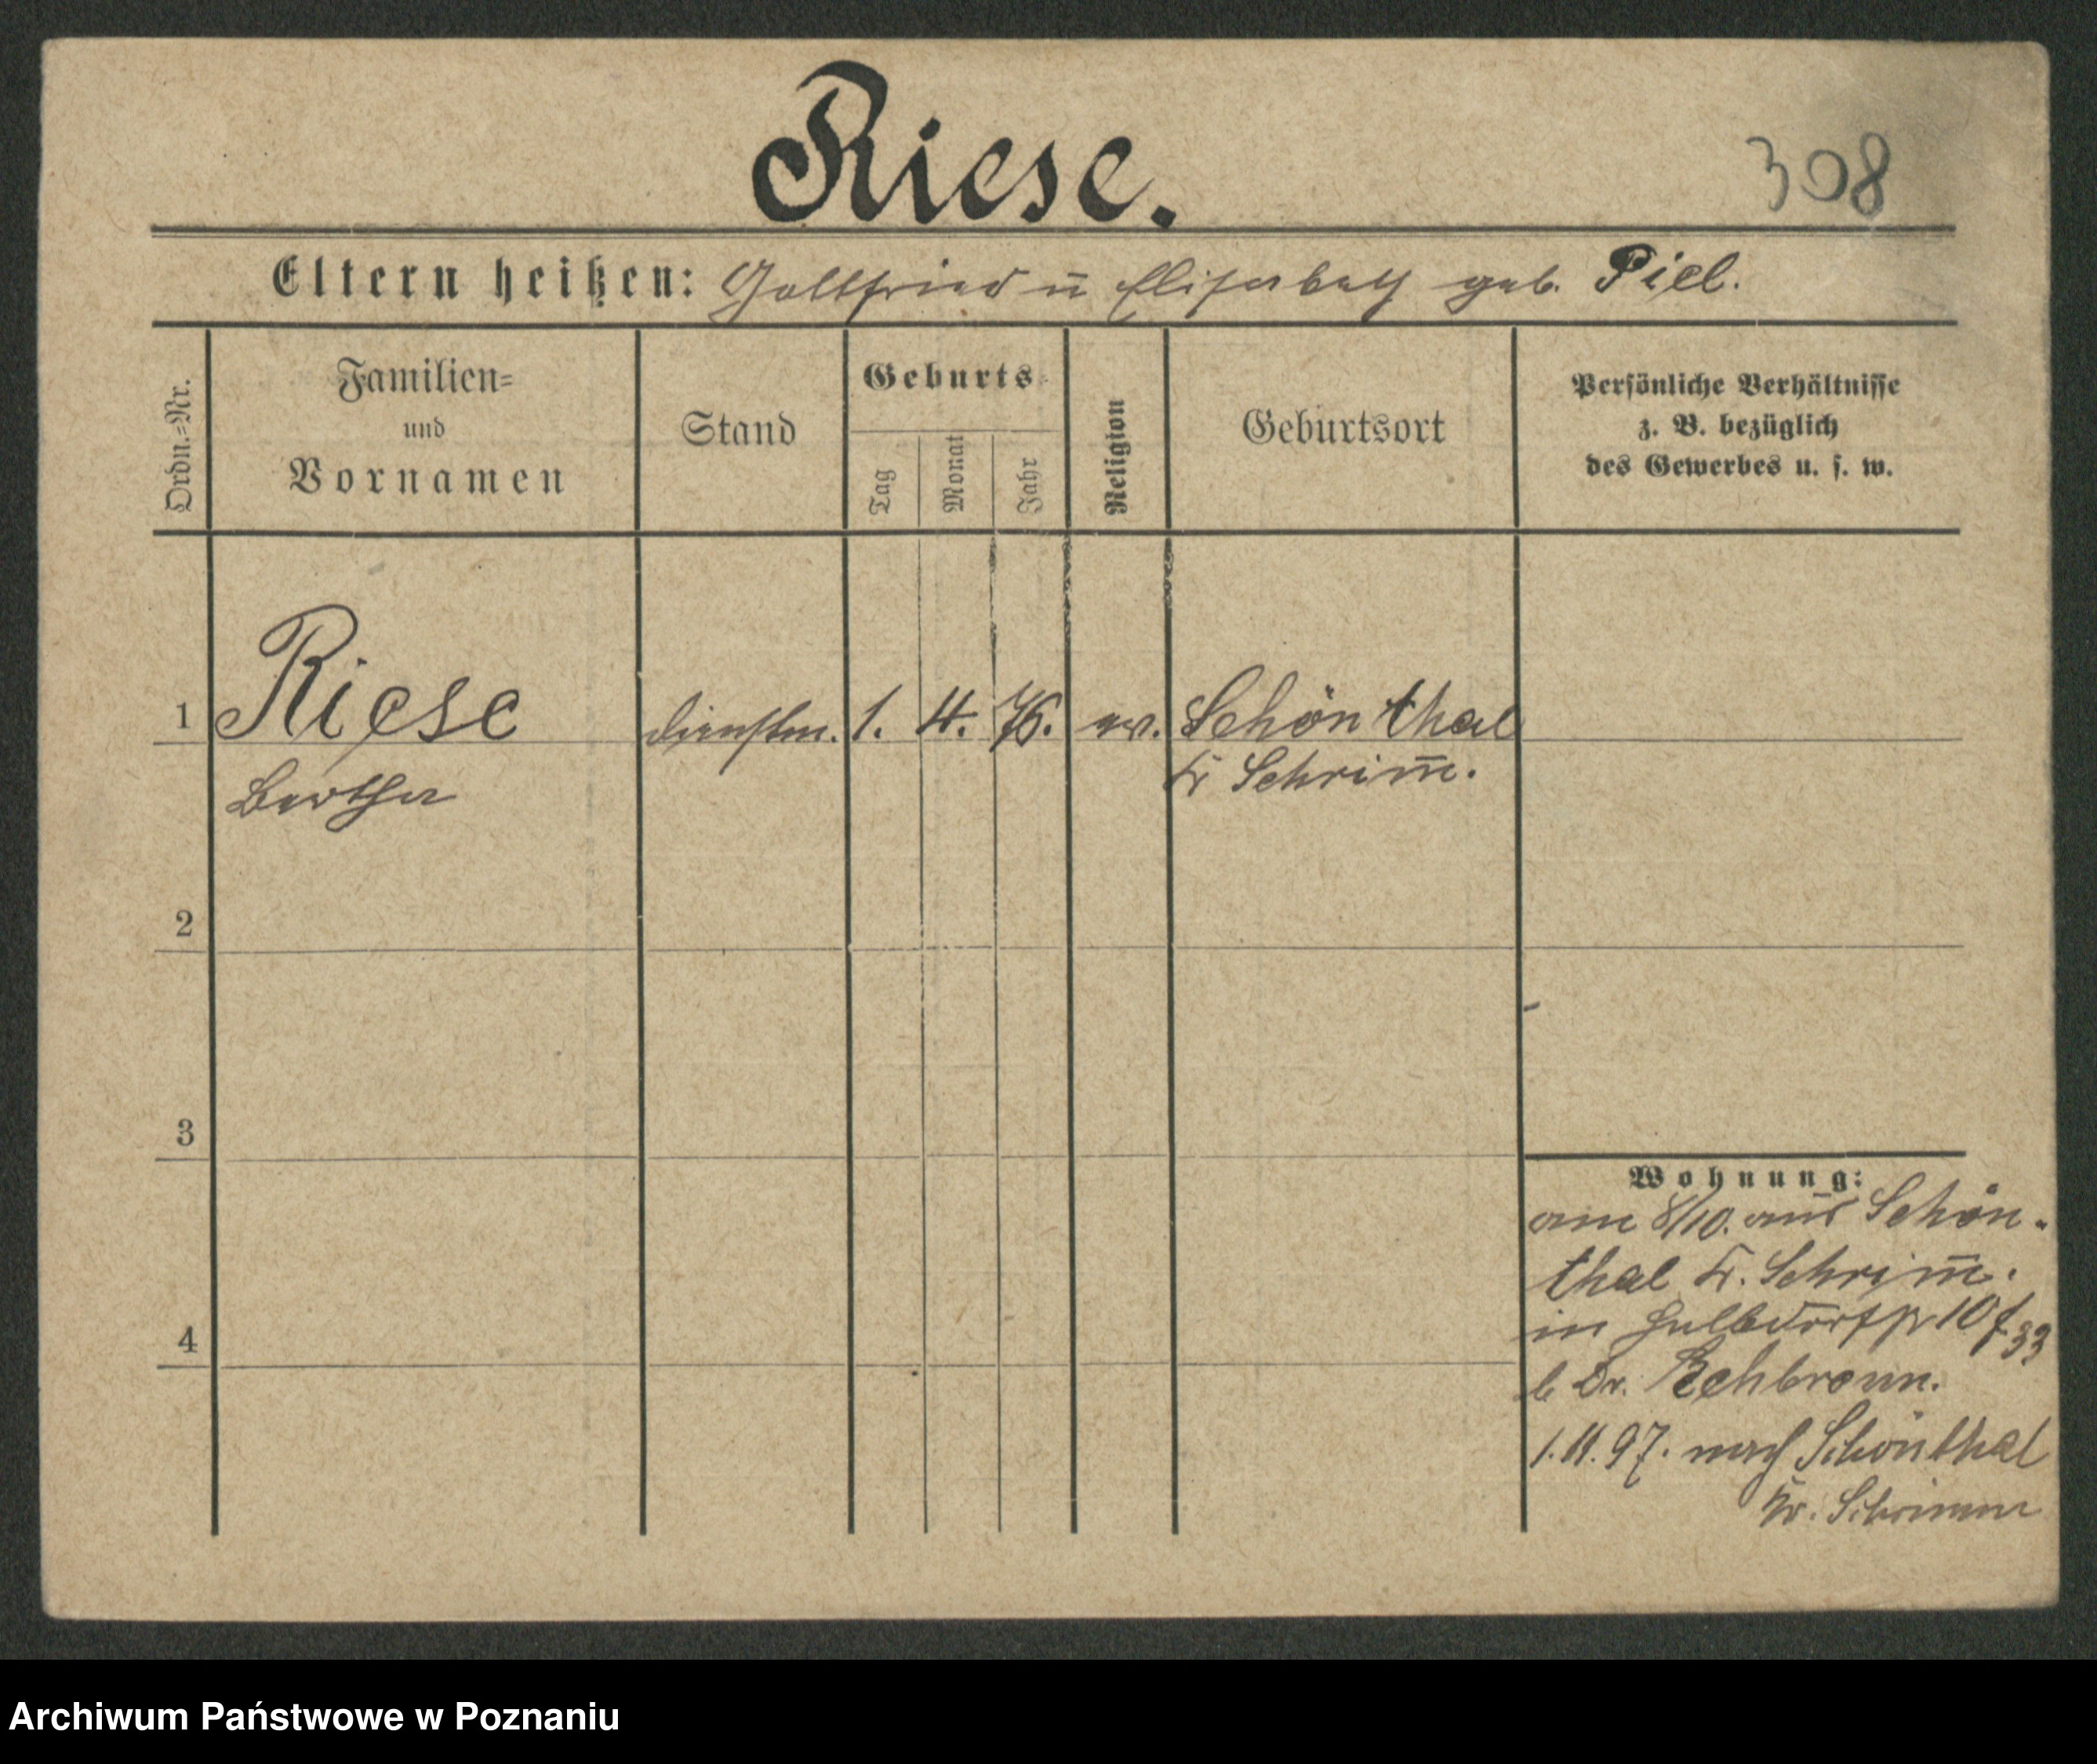 Riese.
308
Eltern heißen: Gottfried u Elisabeth geb. Piel.
Ordn.=Nr.
Familien=
und
Vornamen
Stand
Geburts=
Tag
Monat
Jahr
Religion
Geburtsort
Persönliche Verhältnisse
z. B. bezüglich
des Gewerbes u. s. w.
1 Riese dienstm. 1. 4. 76. ev. Schönthal
Bertha
Kr Schrim̅.
2
3
4
Wohnung:
am 8/10. aus Schön-
thal Kr. Schrim̅.
in
b Dr.
1.11.97. nach Schönthal
Kr. Schrimm
Archiwum Państwowe w Poznaniu